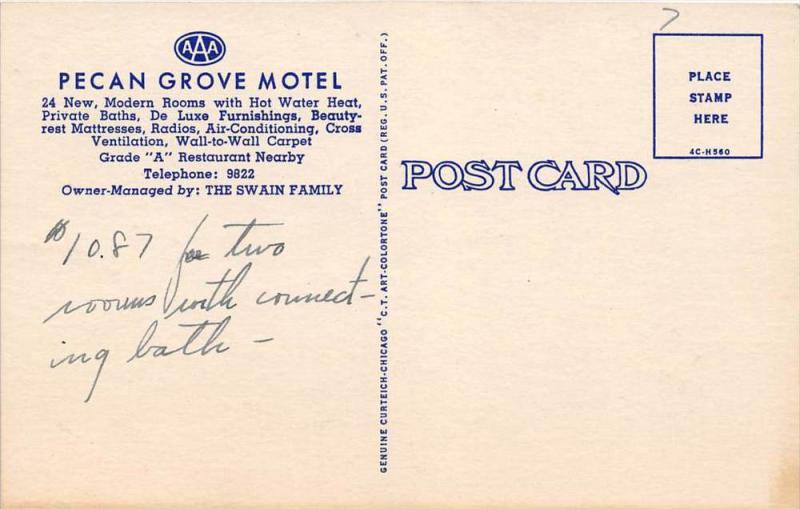 AAA
PECAN GROVE MOTEL
24 New, Modern Rooms with Hot Water Heat,
Private Baths, De Luxe Furnishings, Beauty-
rest Mattresses, Radios, Air-Conditioning, Cross
Ventilation, Wall-to-Wall Carpet
Grade "A" Restaurant Nearby
Telephone: 9822
Owner-Managed by: THE SWAIN FAMILY
$10.87 for two
rooms with connect-
ing bath –
GENUINE CURTEICH-CHICAGO "C.T. ART-COLORTONE" POST CARD (REG. U.S. PAT. OFF.)
POST CARD
7
PLACE
STAMP
HERE
4C-H560